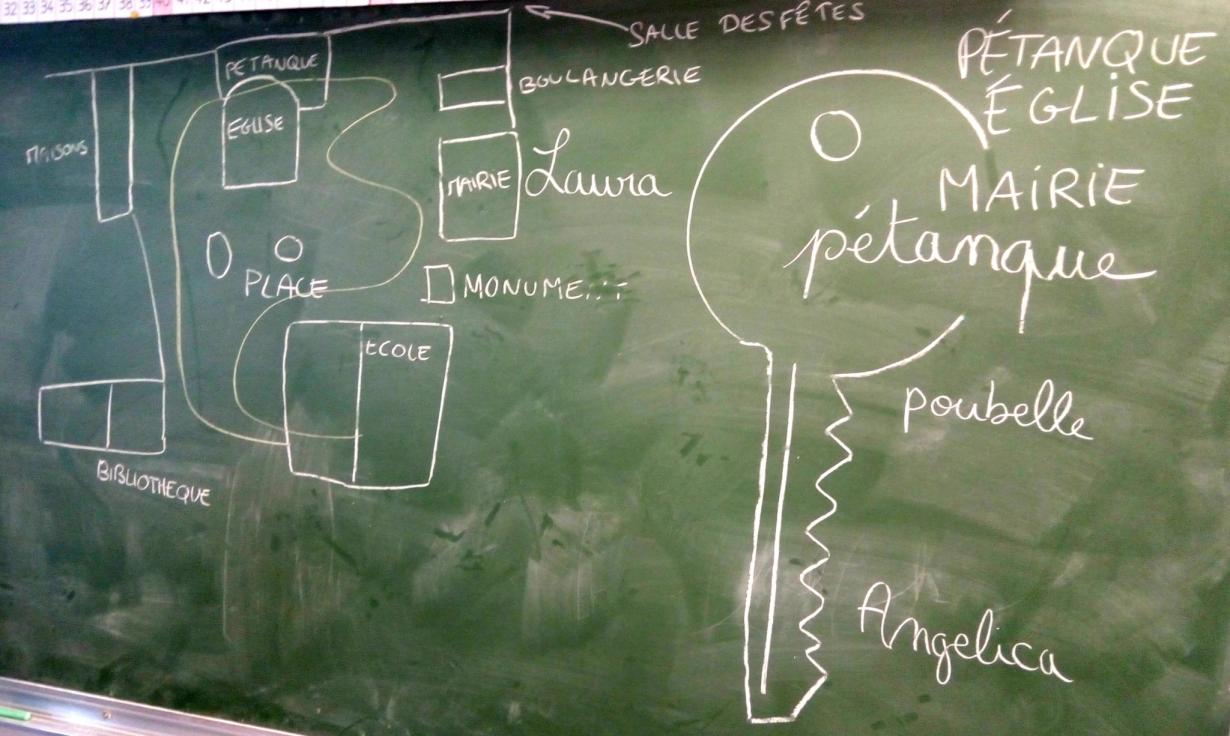 32 33 34 35 36 37 38 39 40 41 42 43
SALLE DES FÊTES
PETANQUE
EGLISE
MAISONS
BOULANGERIE
MAIRIE
Laura
PLACE
MONUME
ECOLE
BIBLIOTHEQUE
PÉTANQUE
ÉGLISE
MAIRIE
pétanque
poubelle
Angelica